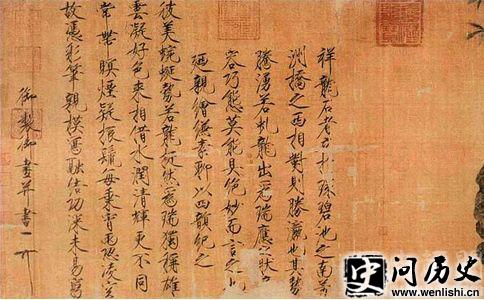 祥龍石者立於環碧池之南芳
洲橋之西相對則勝瀛也其勢
騰湧若虬龍出為瑞應之狀奇
容巧態莫能具絕妙而言之也
廼親繪縑素聊以四韻紀之
彼美蜿蜒勢若龍挺然為瑞獨稱雄
雲凝好色來相借水潤清輝更不同
常帶暝煙疑振鬣每乘宵雨恐凌空
故憑彩筆親模寫融結功深未易窮
御製御畫并書
史 问历史
www.wenlishi.cn